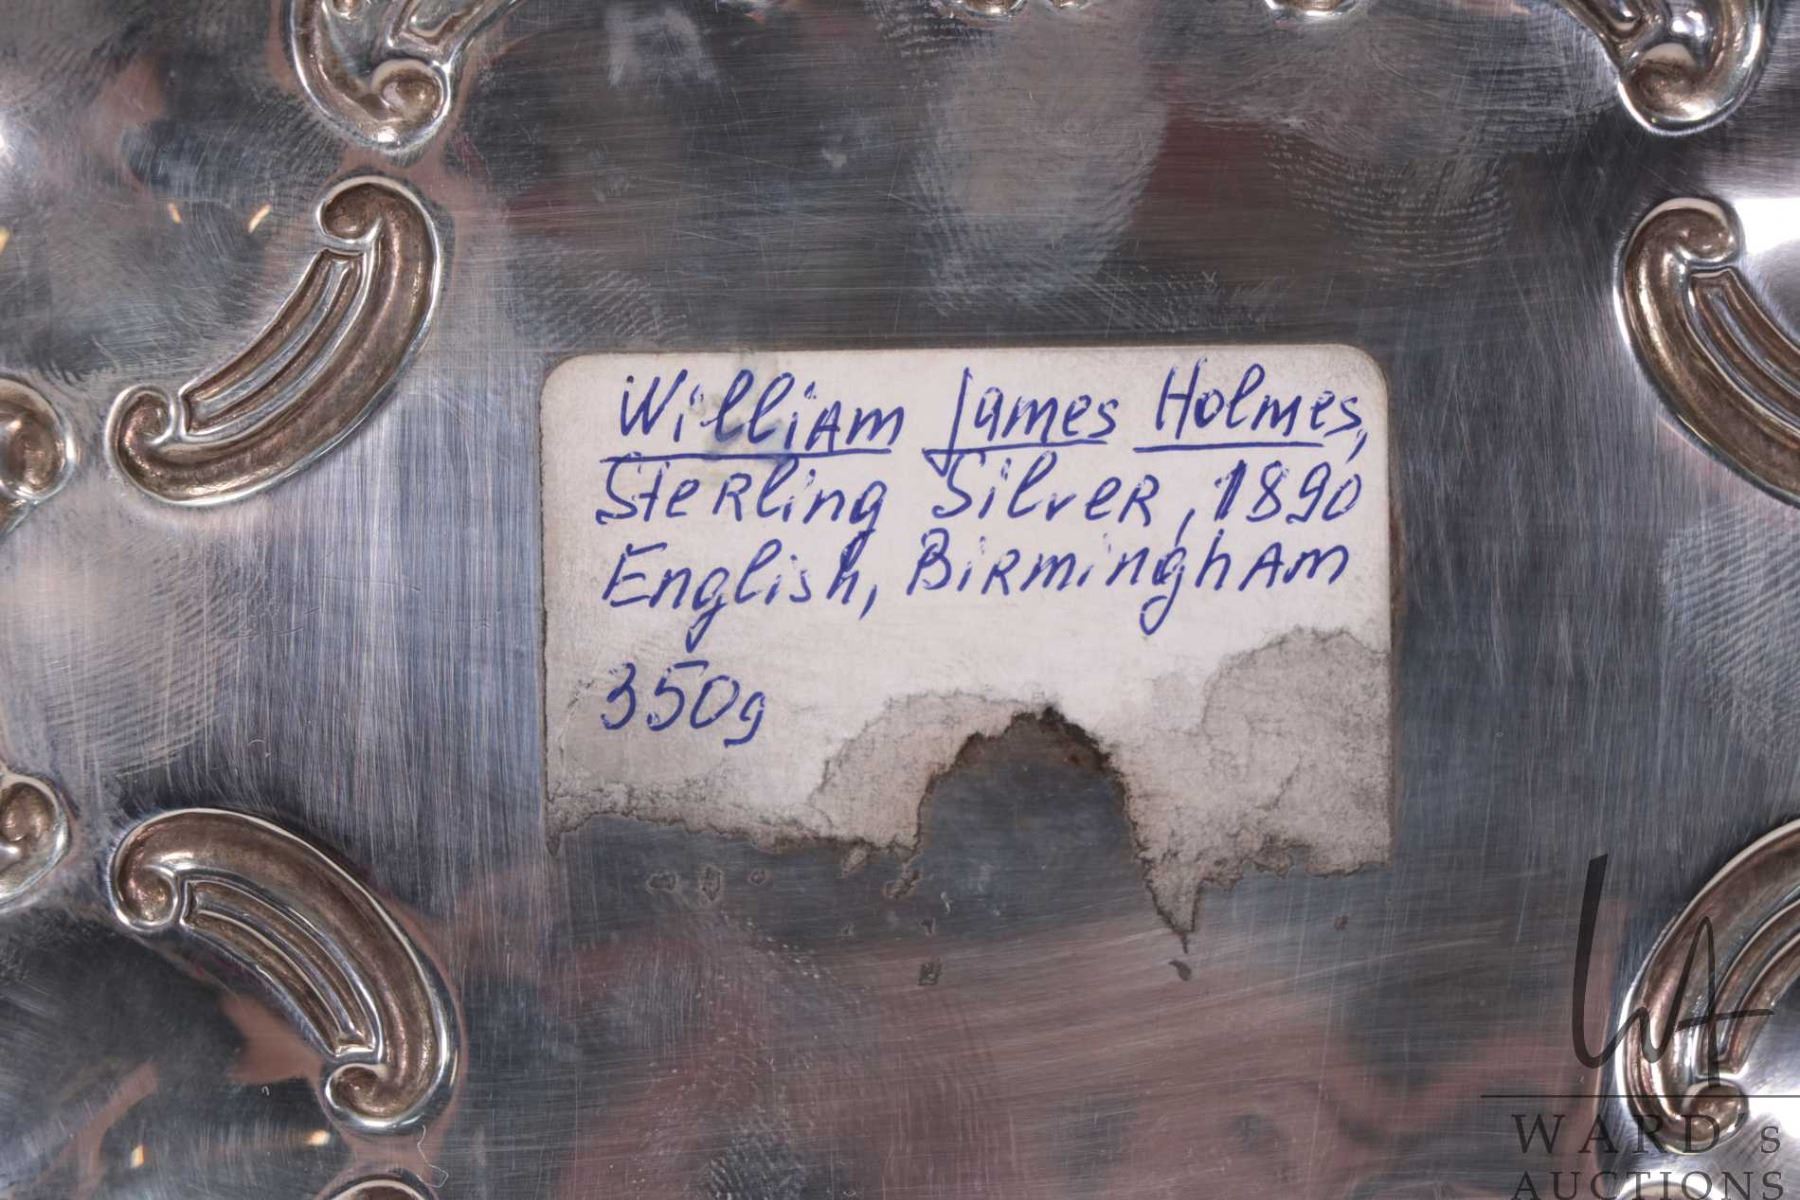 William James Holmes,
Sterling Silver, 1890
English, Birmingham
350g
WA
WARD's
AUCTIONS